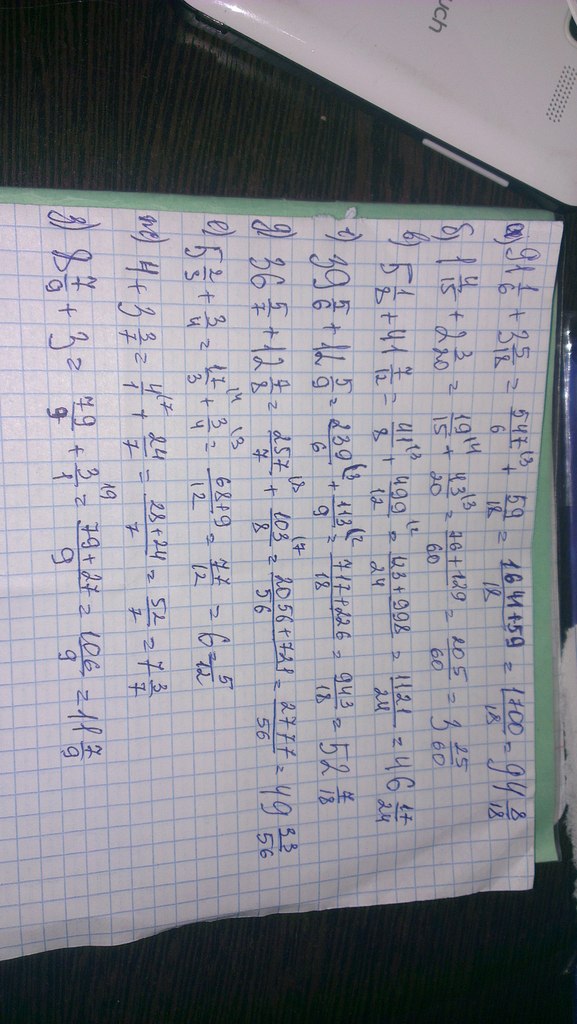 uch
а) 91 1/6 + 3 5/18 = 547/6 ⁽³ + 59/18 = 1641+59/18 = 1700/18 = 94 8/18
б) 1 4/15 + 2 3/20 = 19/15 ⁽⁴ + 43/20 ⁽³ = 76+129/60 = 205/60 = 3 25/60
в) 5 1/8 + 41 7/12 = 41/8 ⁽³ + 499/12 ⁽² = 123+998/24 = 1121/24 = 46 17/24
г) 39 5/6 + 12 5/9 = 239/6 ⁽³ + 113/9 ⁽² = 717+226/18 = 943/18 = 52 7/18
д) 36 5/7 + 12 7/8 = 257/7 ⁽⁸ + 103/8 ⁽⁷ = 2056+721/56 = 2777/56 = 49 33/56
е) 5 2/3 + 3/4 = 17/3 ⁽⁴ + 3/4 ⁽³ = 68+9/12 = 77/12 = 6 5/12
ж) 4 + 3 3/7 = 4/1 ⁽⁷ + 24/7 = 28+24/7 = 52/7 = 7 3/7
з) 8 7/9 + 3 = 79/9 + 3/1 ⁽⁹ = 79+27/9 = 106/9 = 11 7/9